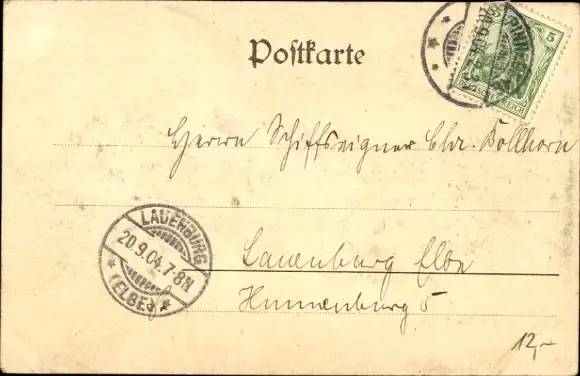 Postkarte
5
DEUTSCHES REICH
Herrn Schiffseigner Chr. Bollhorn
LAUENBURG
20.9.04.7-8N
* (ELBE) *
Lauenburg Elbe
5
12,-